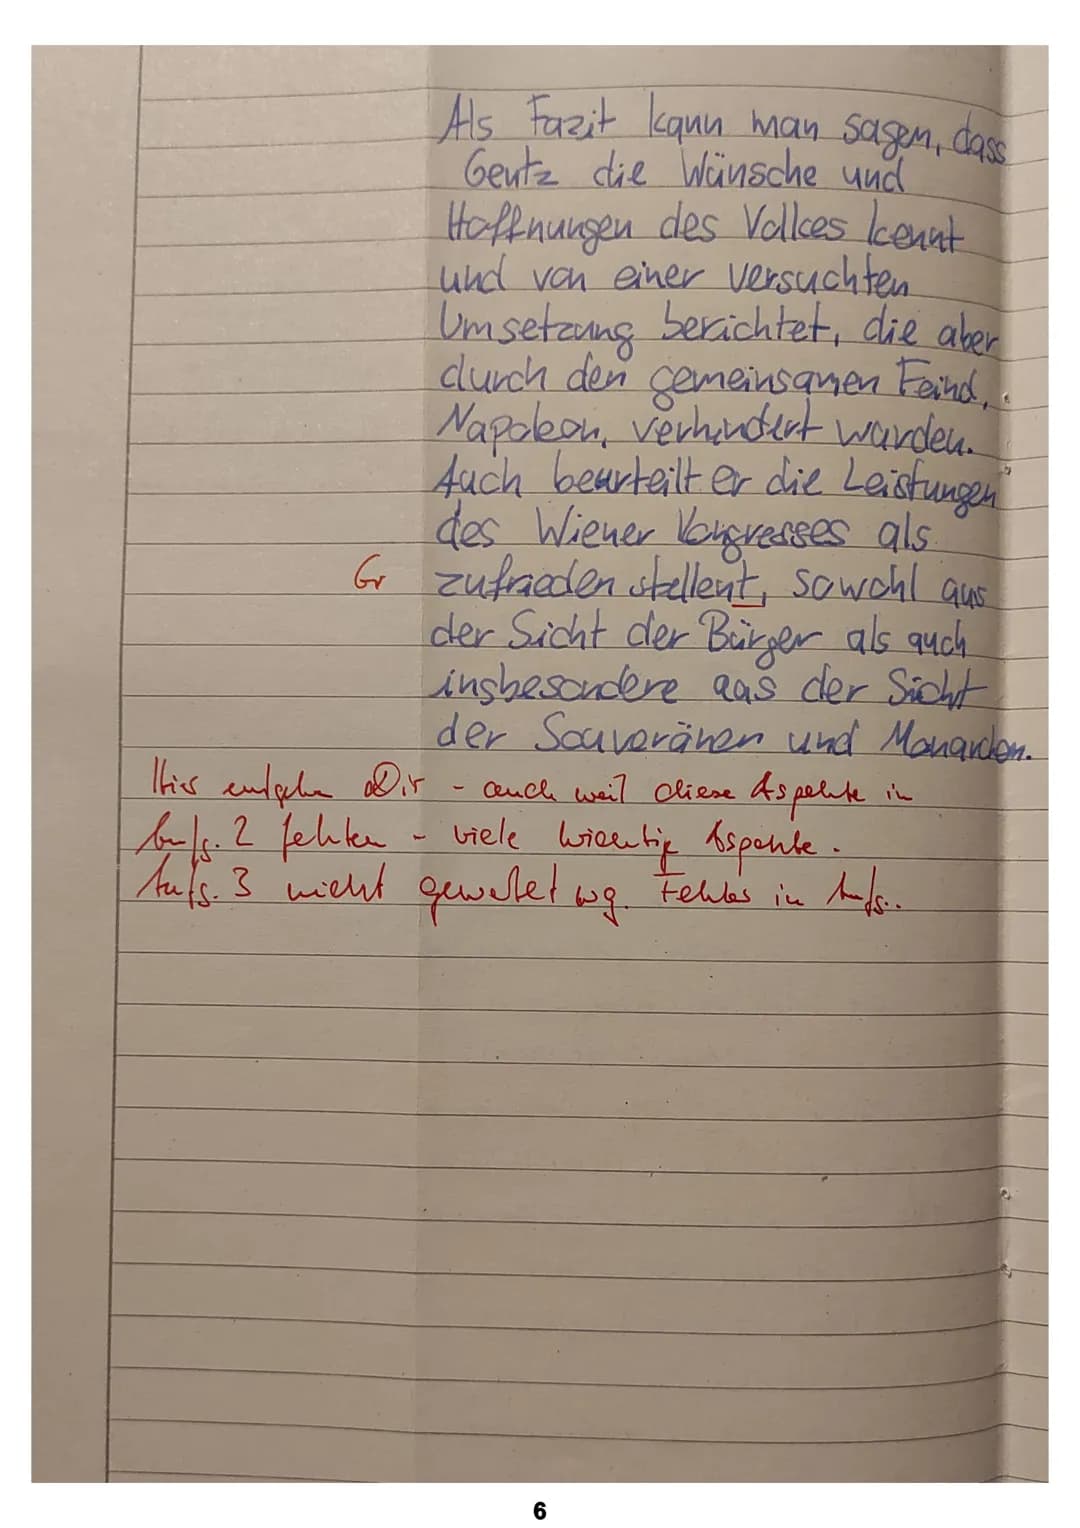 Als Fazit kann man sagen, dass
Gentz die Wünsche und
Hoffnungen des Volkes kennt
und von einer versuchten
Umsetzung berichtet, die aber
durch den gemeinsamen Feind,
Napoleon, verhindert wurden.
Auch beurteilt er die Leistungen
des Wiener Kongresses als
Gr zufrieden stellent, sowohl aus
der Sicht der Bürger als auch
insbesondere aus der Sicht
der Souveränen und Monarchen.
Hier entgehen Dir - auch weil diese Aspekte in
Aufg. 2 fehlen - viele wichtige Aspekte.
Aufg. 3 nicht gewertet wg. Fehler in
6